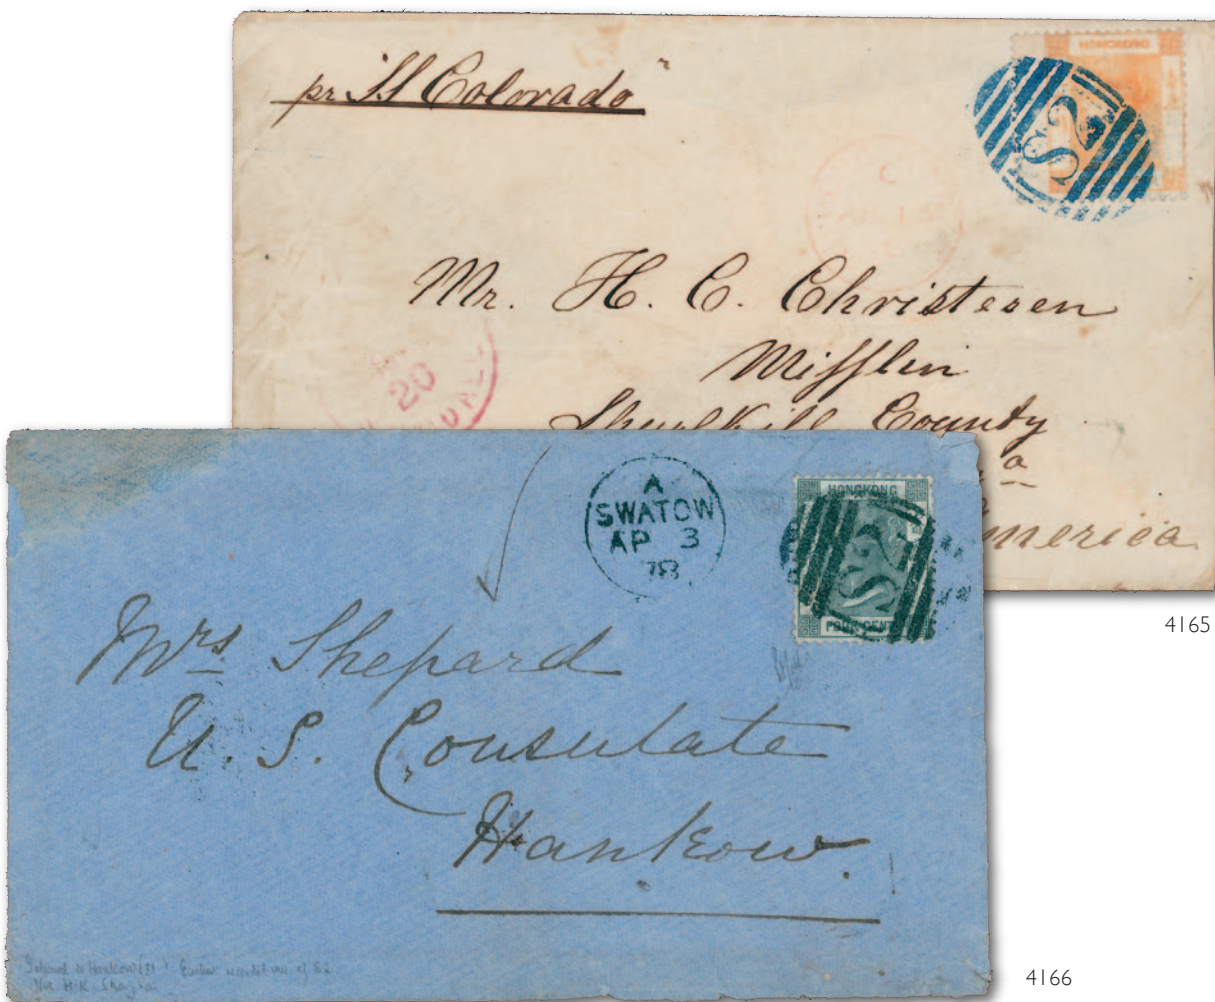 pr "SS Colorado"
HONGKONG
S2
Mr. H. C. Christesen
Mifflin
20
Shuylkill County
a
America
4165
A
SWATOW
AP 3
78
HONGKONG
S2
FOUR CENTS
Mrs Shepard
U. S. Consulate
Hankow.
4166